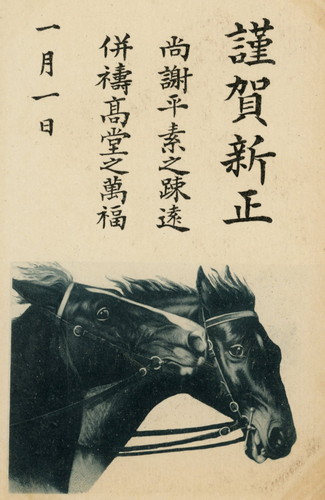 謹賀新正
尚謝平素之疎遠
併禱髙堂之萬福
一月一日